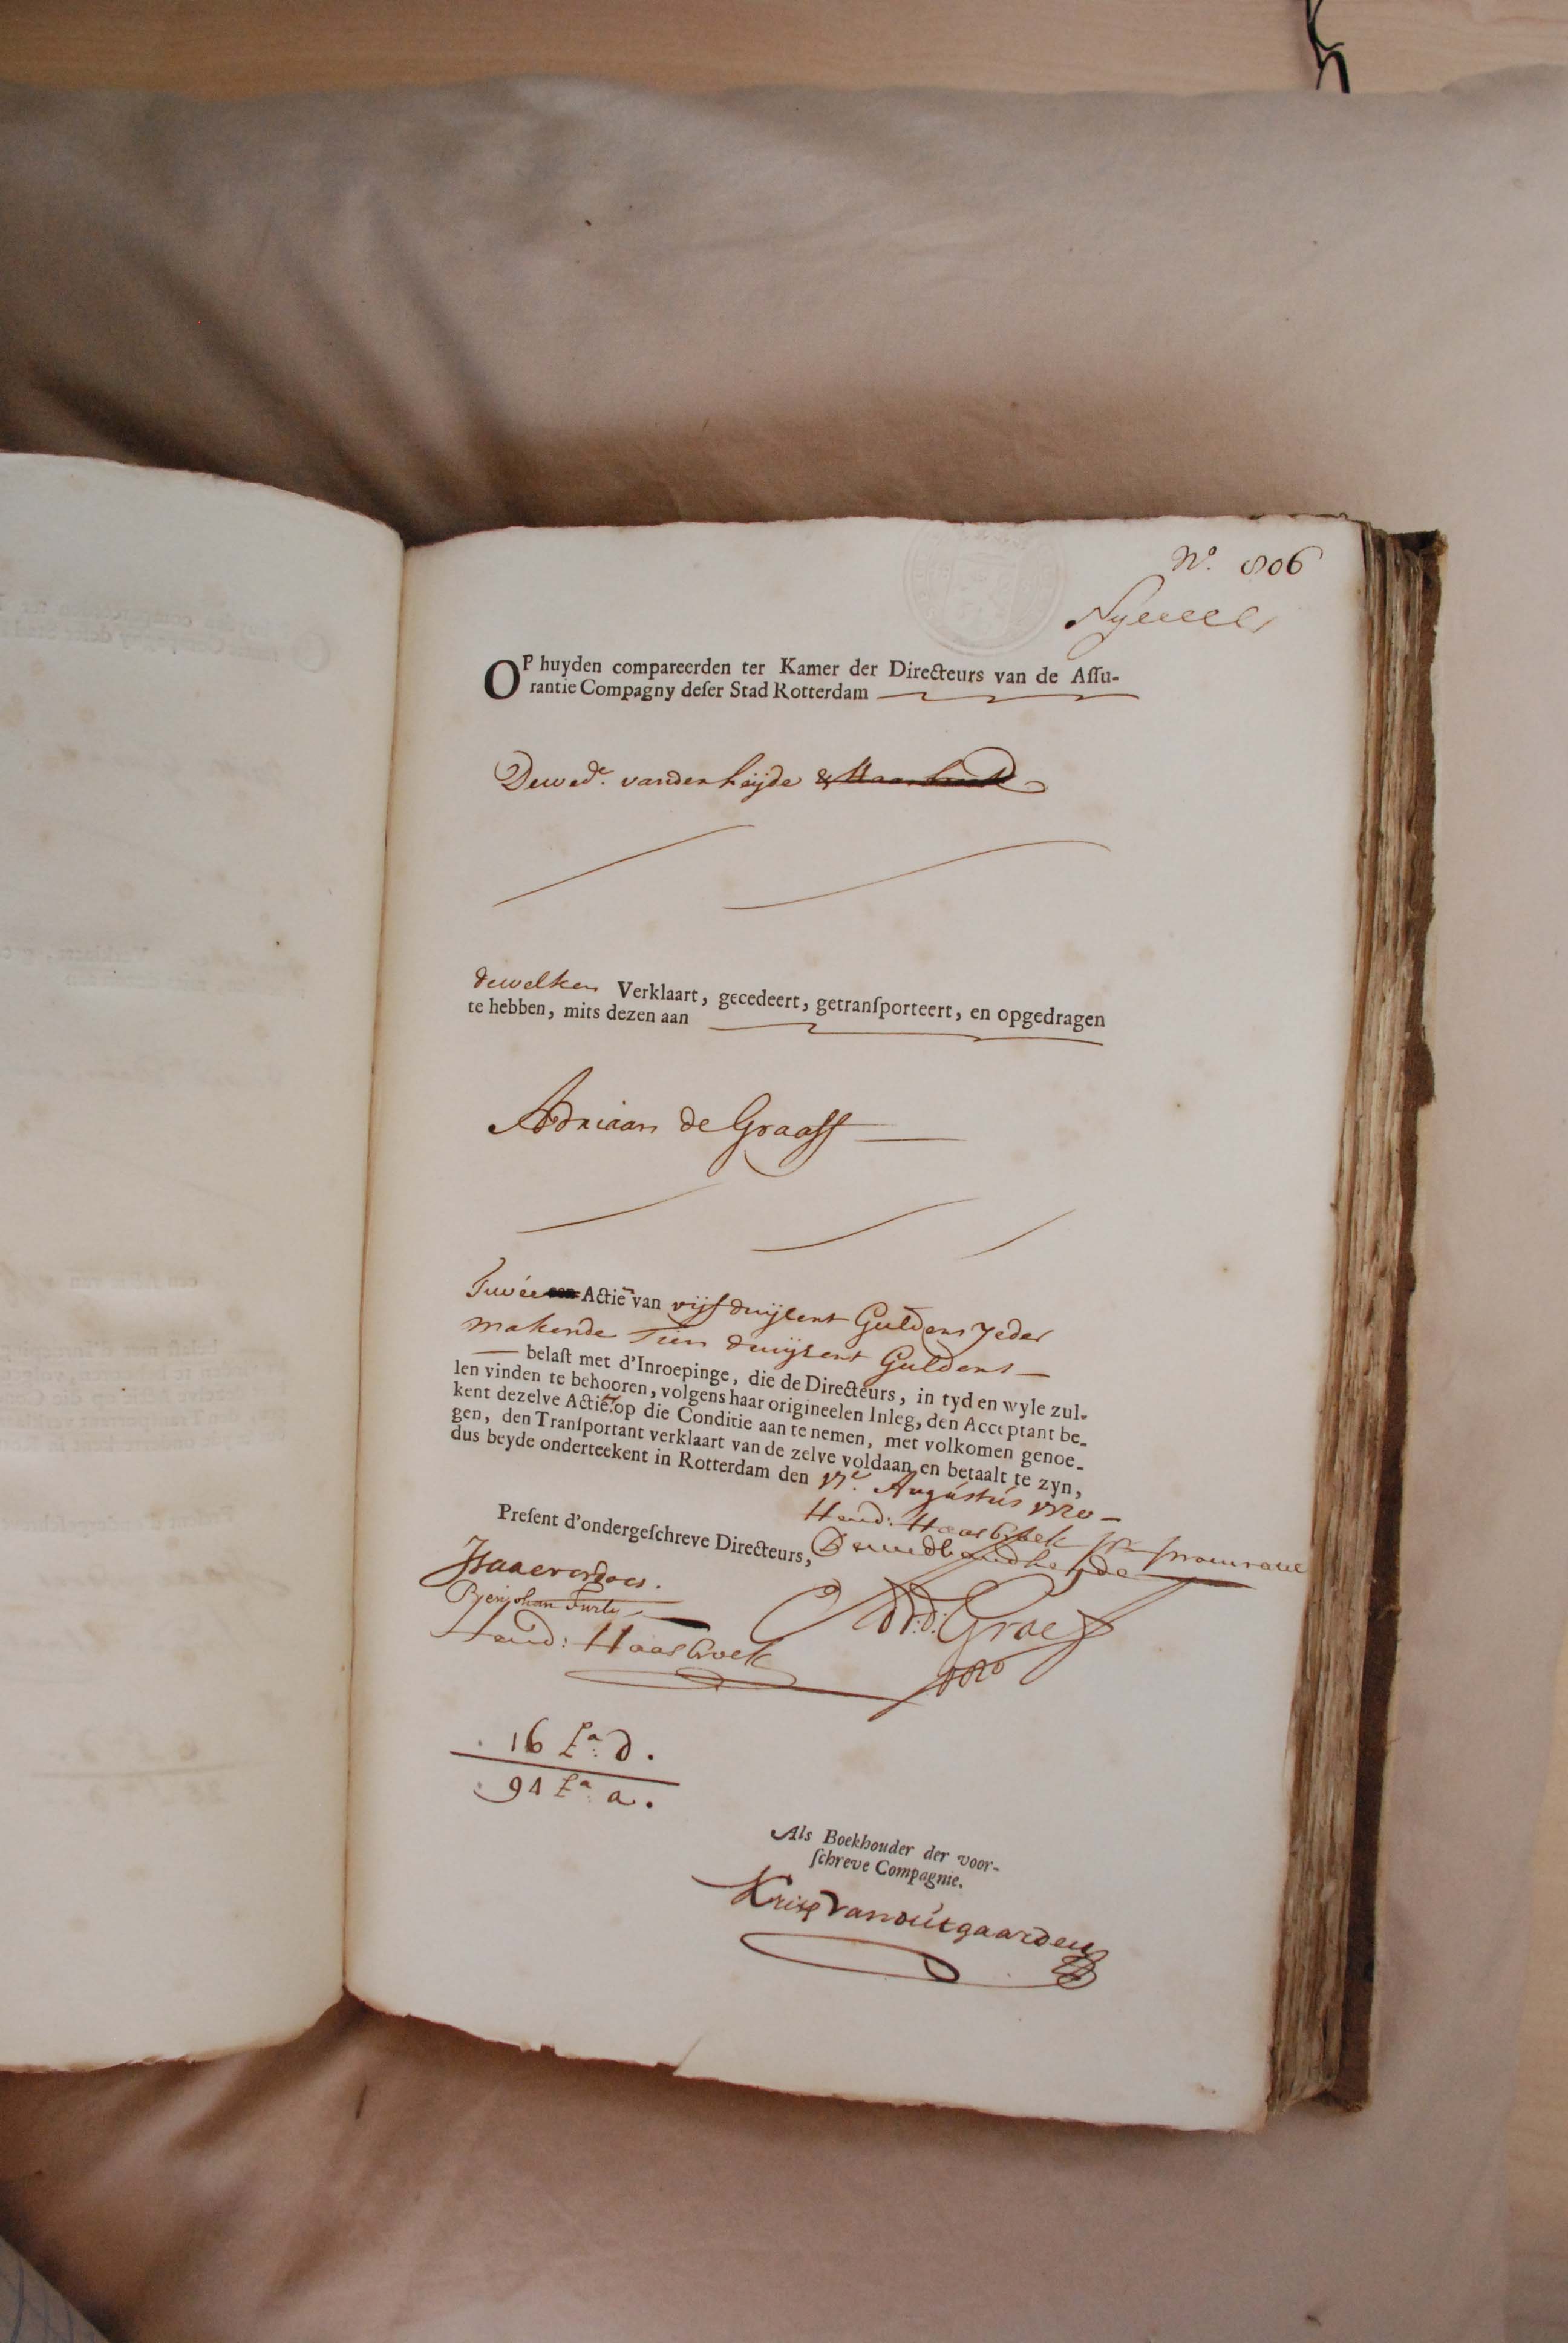 No. 806
OP huyden compareerden ter Kamer der Directeurs van de Assu-
rantie Compagny deser Stad Rotterdam
De wede. vander heijde &
dewelken Verklaart, gecedeert, getransporteert, en opgedragen
te hebben, mits dezen aan
Adriaan de Graaff
Twee een Actie van vijf duijsent Guldens Jeder
makende Tien duijsent Guldens
belast met d'Inroepinge, die de Directeurs, in tyd en wyle zul-
len vinden te behooren, volgens haar origineelen Inleg, den Acceptant be-
kent dezelve Actie op die Conditie aan te nemen, met volkomen genoe-
gen, den Transportant verklaart van de zelve voldaan en betaalt te zyn,
dus beyde onderteekent in Rotterdam den 17e. Augustus 1720
Hend: Haasbroek
Present d'ondergeschreve Directeurs,
De wed vand heyde
Benj: Furly
Adr: d: Graef
Hend: Haasbroek
1720
16 La. d.
94 La. a.
Als Boekhouder der voor-
schreve Compagnie.
Kris Van outgaarden